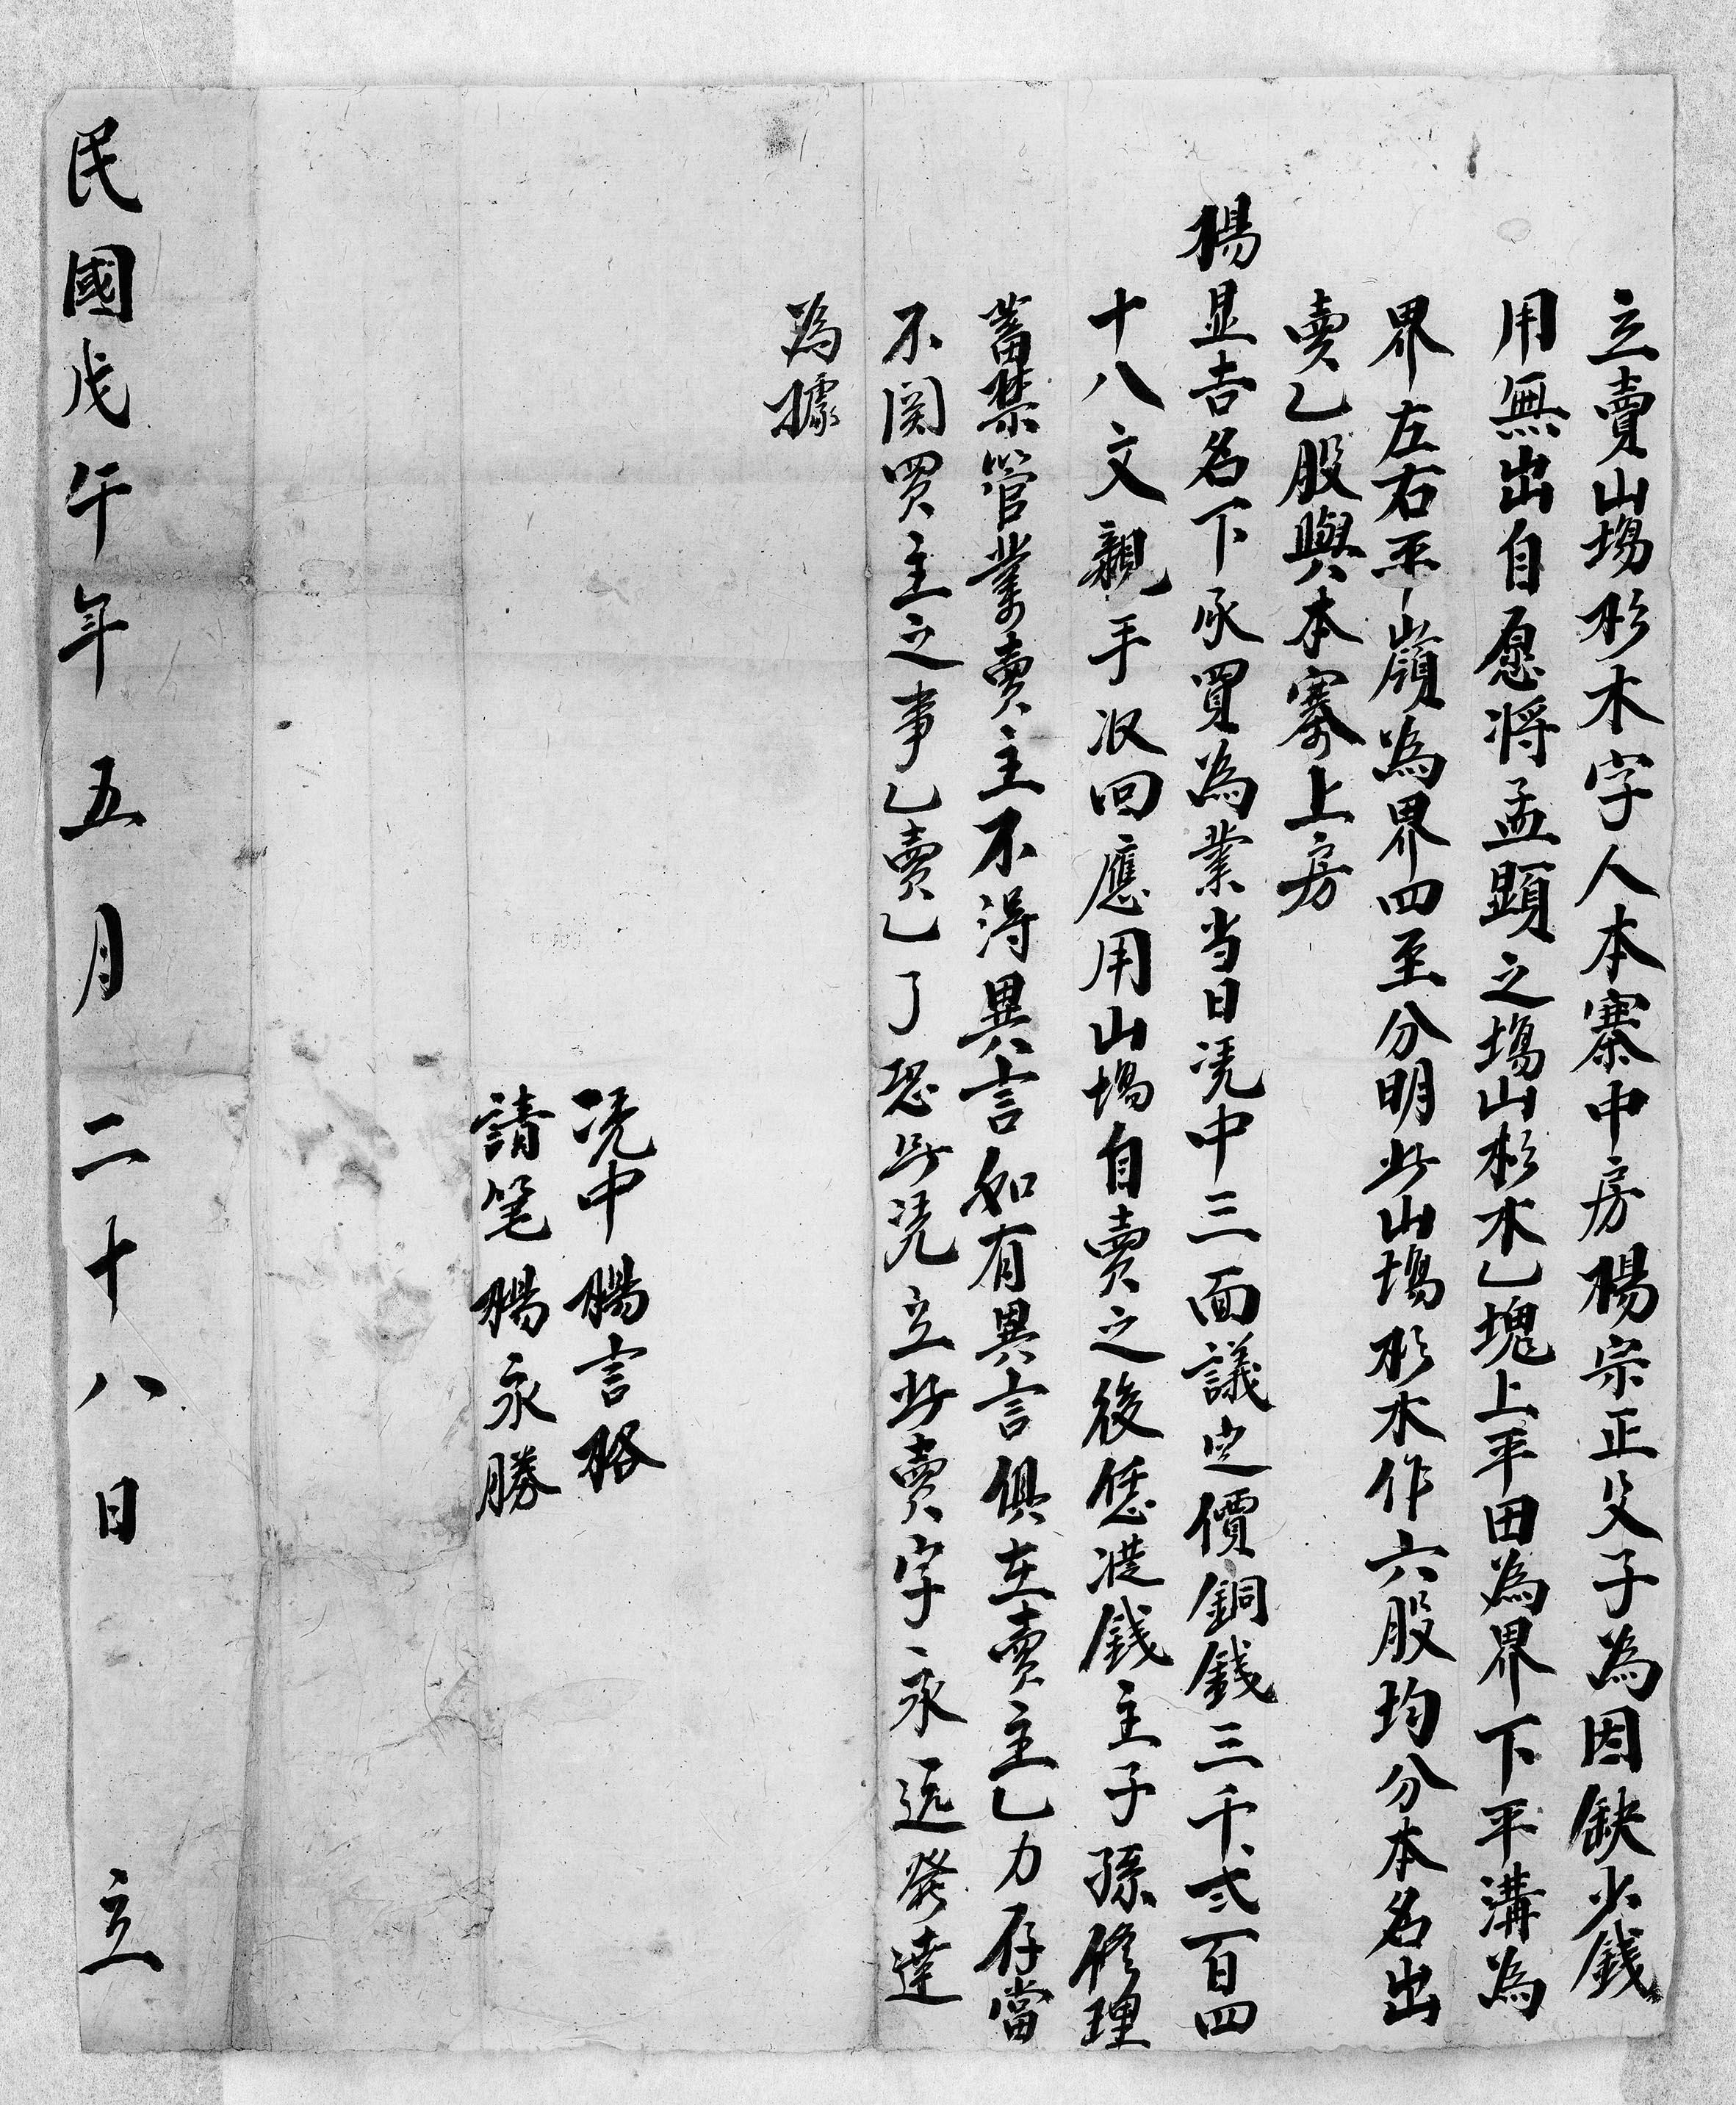 立賣山塲杉木字人本寨中房楊宗正父子為因缺少錢
用無出自愿将孟顕之塲山杉木乙塊上平田為界下平溝為
界左右平山嶺為界四至分明此山塲杉木作六股均分本名出
賣乙股與本寨上房
楊显吉名下承買為業当日凴中三面議定價銅錢三千弍百四
十八文親手収回應用山塲自賣之後恁從錢主子孫修理
蓄禁管業賣主不得異言如有異言俱在賣主乙力存當
不関買主之事乙賣乙了恐口凴立此賣字永遠發達
為據
凴中楊言
請笔楊永勝
民國戊午年五月二十八日立